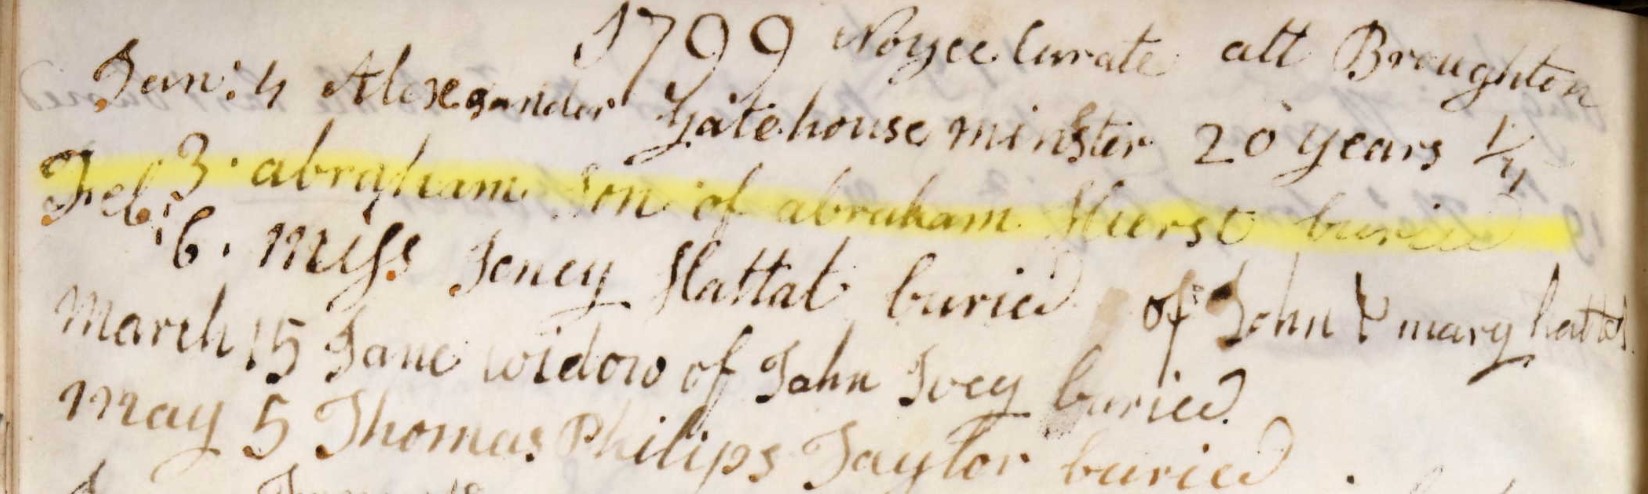 1799 Noyce Curate att Broughton
Jan: 4 Alexander Gatehouse minister 20 years 1/4
Feb: 3. abraham son of abraham Hurst buried
6. Miss Jeney Hattat buried of John & mary hattat
March 15 Jane widow of John Ivey buried
May 5 Thomas Philips Taylor buried